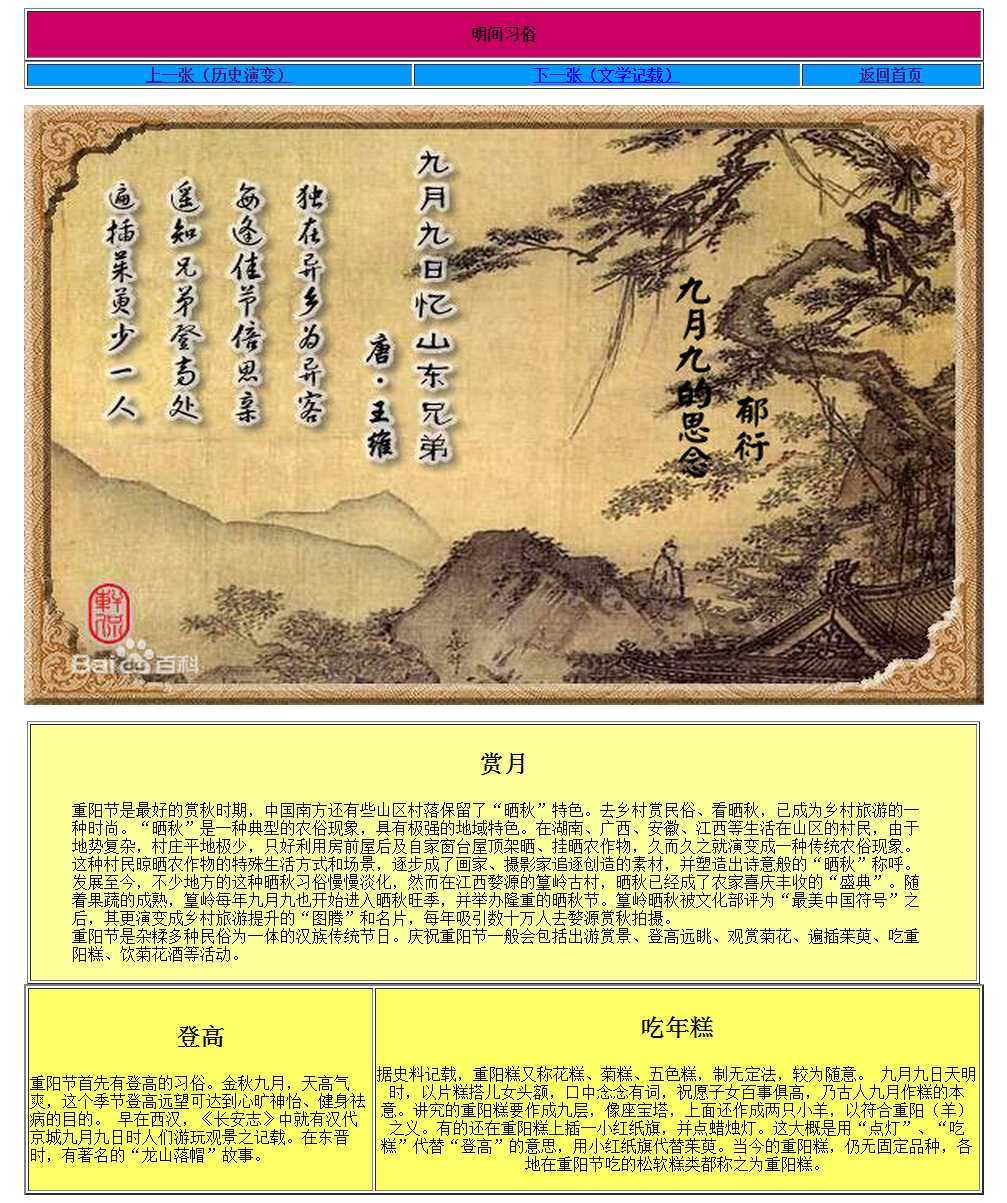 明间习俗
上一张（历史演变）
下一张（文学记载）
返回首页
九月九的思念
郁衍
九月九日忆山东兄弟
唐·王维
独在异乡为异客
每逢佳节倍思亲
遥知兄弟登高处
遍插茱萸少一人
Baidu百科
赏月
重阳节是最好的赏秋时期，中国南方还有些山区村落保留了“晒秋”特色。去乡村赏民俗、看晒秋，已成为乡村旅游的一
种时尚。“晒秋”是一种典型的农俗现象，具有极强的地域特色。在湖南、广西、安徽、江西等生活在山区的村民，由于
地势复杂，村庄平地极少，只好利用房前屋后及自家窗台屋顶架晒、挂晒农作物，久而久之就演变成一种传统农俗现象。
这种村民晾晒农作物的特殊生活方式和场景，逐步成了画家、摄影家追逐创造的素材，并塑造出诗意般的“晒秋”称呼。
发展至今，不少地方的这种晒秋习俗慢慢淡化，然而在江西婺源的篁岭古村，晒秋已经成了农家喜庆丰收的“盛典”。随
着果蔬的成熟，篁岭每年九月九也开始进入晒秋旺季，并举办隆重的晒秋节。篁岭晒秋被文化部评为“最美中国符号”之
后，其更演变成乡村旅游提升的“图腾”和名片，每年吸引数十万人去婺源赏秋拍摄。
重阳节是杂糅多种民俗为一体的汉族传统节日。庆祝重阳节一般会包括出游赏景、登高远眺、观赏菊花、遍插茱萸、吃重
阳糕、饮菊花酒等活动。
登高
重阳节首先有登高的习俗。金秋九月，天高气
爽，这个季节登高远望可达到心旷神怡、健身祛
病的目的。 早在西汉，《长安志》中就有汉代
京城九月九日时人们游玩观景之记载。在东晋
时，有著名的“龙山落帽”故事。
吃年糕
据史料记载，重阳糕又称花糕、菊糕、五色糕，制无定法，较为随意。 九月九日天明
时，以片糕搭儿女头额，口中念念有词，祝愿子女百事俱高，乃古人九月作糕的本
意。讲究的重阳糕要作成九层，像座宝塔，上面还作成两只小羊，以符合重阳（羊）
之义。有的还在重阳糕上插一小红纸旗，并点蜡烛灯。这大概是用“点灯”、“吃
糕”代替“登高”的意思，用小红纸旗代替茱萸。当今的重阳糕，仍无固定品种，各
地在重阳节吃的松软糕类都称之为重阳糕。